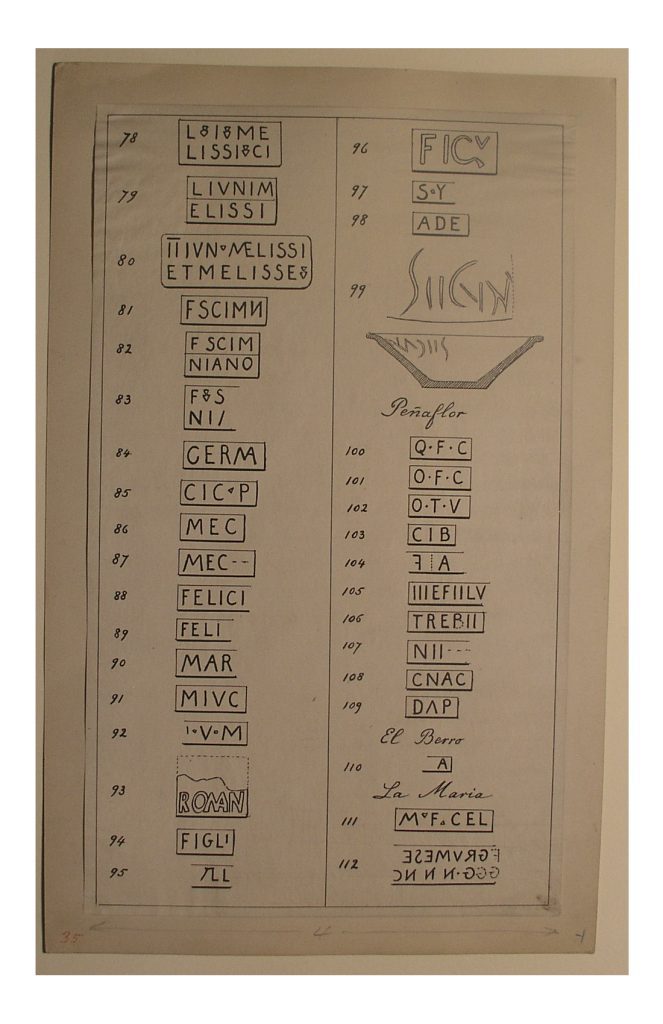 78 L&I&ME
LISSI&CI
79 LIVNIM
ELISSI
80 IIIVN·MELISSI
ETMELISSE&
81 FSCIMN
82 F SCIM
NIANO
83 F&S
NI/
84 GERM
85 CIC·P
86 MEC
87 MEC--
88 FELICI
89 FELI
90 MAR
91 MIVC
92 I·V·M
93 ROMAN
94 FIGLI
95
96 FICV
97 S·Y
98 ADE
99 SIICVN
SIICVN
Peñaflor
100 Q·F·C
101 O·F·C
102 O·T·V
103 CIB
104 ƎIA
105 IIIEFIILV
106 TREBII
107 NII---
108 CNAC
109 DAP
El Berro
110 A
La Maria
111 M·F·CEL
112 FGRVMESE
GGG·N N NC
35 4 -1